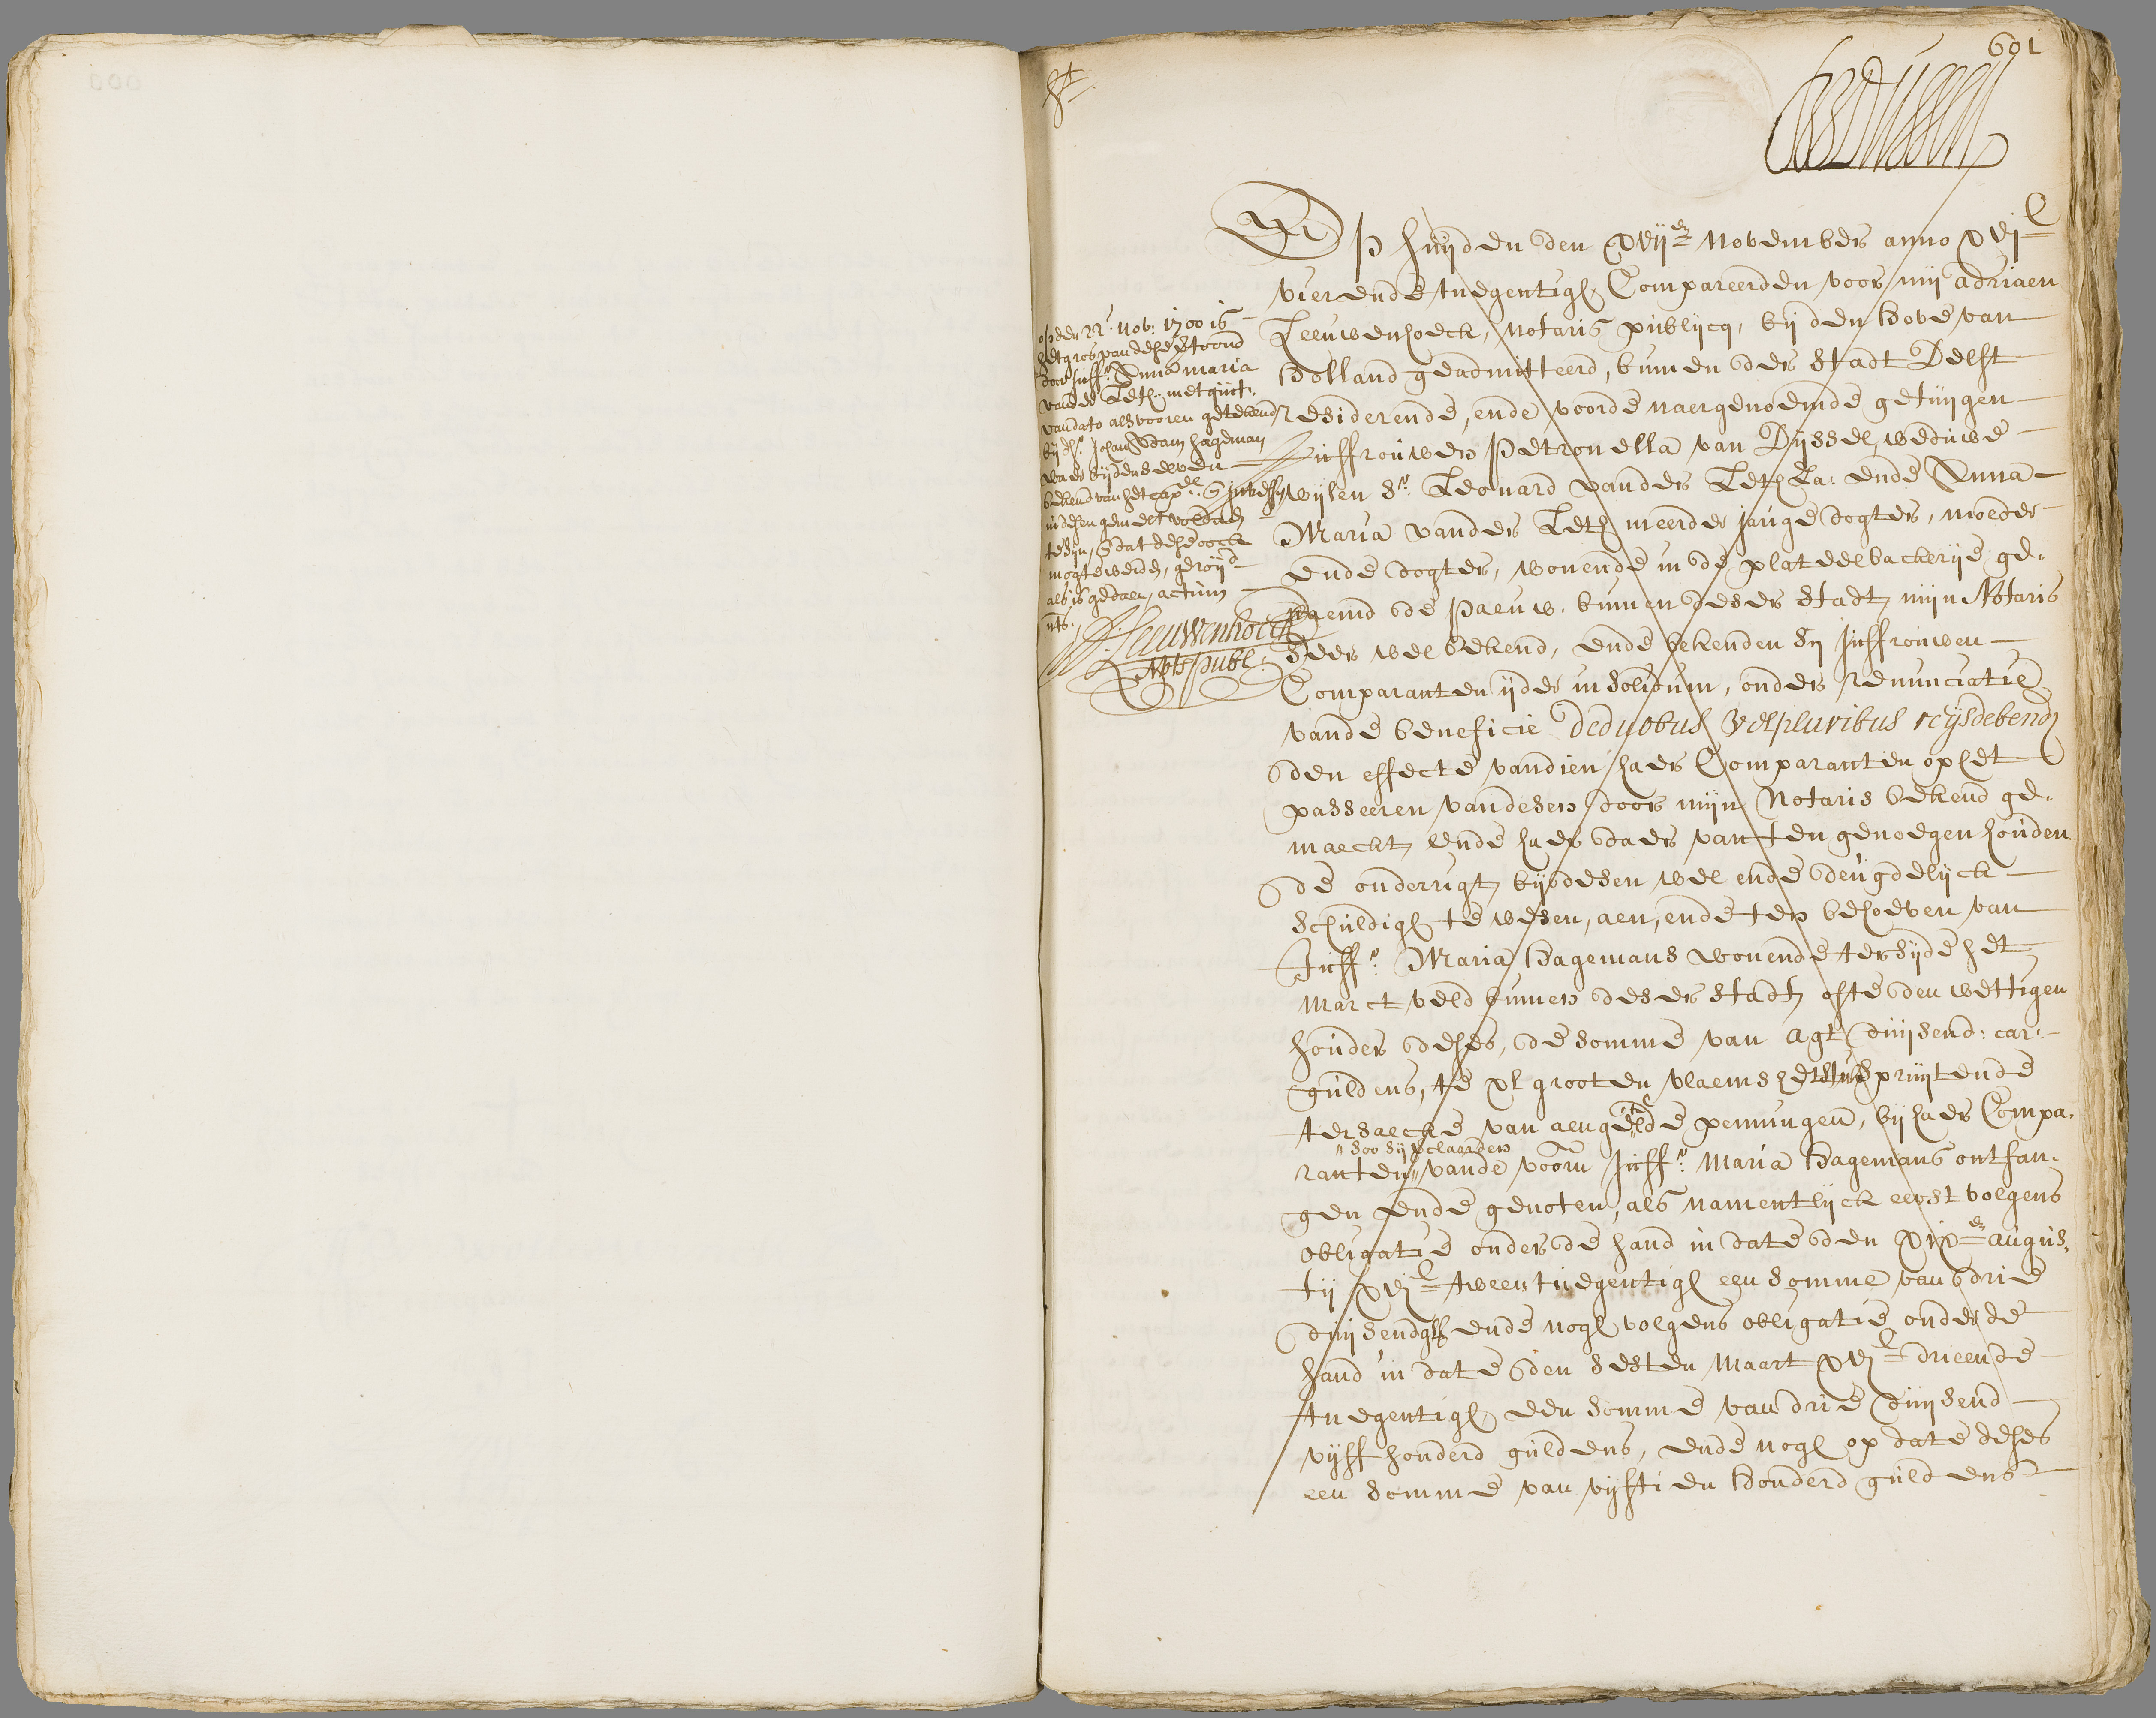 601
Op huijden den xviij.en November anno xvj.C
vierendetnegentigh, Compareerden voor mij adriaen
Leeuwenhoeck, Notaris publijcq, bij den Hove van
Holland geadmitteerd, binnen der Stadt Delft
residerende, ende voorde naergenoemde getuijgen
Juffrouwen Petronella van Dijssel, weduwe
wijlen Sr. Leonard vander Leth Za: ende Anna
Maria vander Leth meerder jarige dogter, moeder
ende dogter, wonende in de plateelbackerije ge-
naemd de Paeuw, binnen deser Stadt, mijn Notaris
seer wel bekend, ende bekenden sij Juffrouwen
Comparanten ijder in solidum, onder renunciatie
vande beneficie de duobus vel pluribus reijs debendi
den effecte vandien haer Comparanten op het
passeeren vandeser door mijn Notaris bekend ge-
maeckt, ende haer daer van ten genoegen houden
de onderrigt, bij desen wel ende deugdelijck
schuldigh te wesen, aen, ende ter behoeven van
Juffr. Maria Hagemans wonende ter sijde het
Marctveld binnen deser Stadt, ofte den wettigen
houder deses, de somme van agt duijsend: car:
guldens, te xl grooten vlaems het stuk spruijtende
ter saecke van aengetelde penningen, bij haer Compa-
"soo sij verclaarden
ranten" vande voorn Juffr. Maria Hagemans ontfan-
gen ende genoten, als namentlijck eerst volgens
obligatie onder de hand in date den xixen augus-
tij xvj.C tweentnegentigh een somme van drie
duijsend gls ende nogh volgens obligatie onder de
hand in date den sesten Maart xvj.C drieende
tnegentigh een somme van drie duijsend
vijff honderd guldens, ende nogh op date deses
een somme van vijftien Honderd guldens
op den 22.e Nov: 1700 is
het gros van dese getoond
door Juffr. Anna Maria
vander Leth. met quit:
van dato als vooren getekend
bij Sr. Johan Adam Hageman
waer bij denselven
bekend van het capel. &
in desen gemelt voldaen
te sijn, & dat dese oock
mogte werden, geroijd
als is gedaen, actum
uts.
A. Leeuwenhoeck
Nots publ: